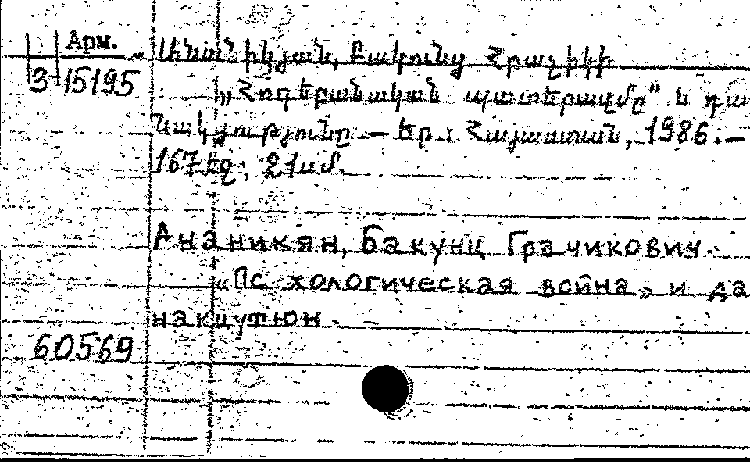 Арм.
3-15195
Անանիկյան, Բակունց Հրաչիկի
„Հոգեբանական պատերազմը" և դա
նակցությունը. — Եր.: Հայաստան, 1986. —
167 էջ; 21սմ.
Ананикян, Бакунц Грачикович.
«Пс хологическая война» и да
накцутюн.
60569